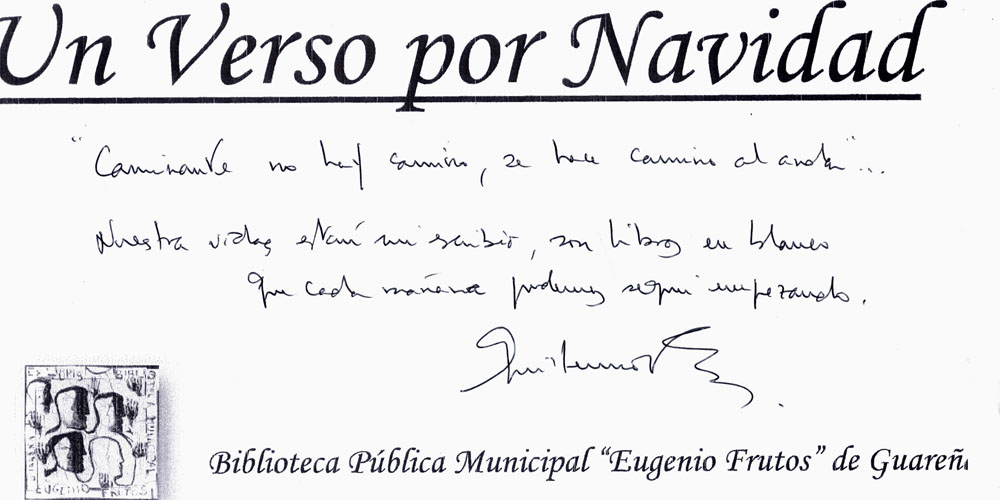 Un Verso por Navidad
"Caminante no hay camino, se hace camino al andar"...
Nuestra vidas están sin escribir, son libros en blanco
que cada mañana podemos seguir empezando.
Guillermo
Biblioteca Pública Municipal "Eugenio Frutos" de Guareña
EUGENIO FRUTOS